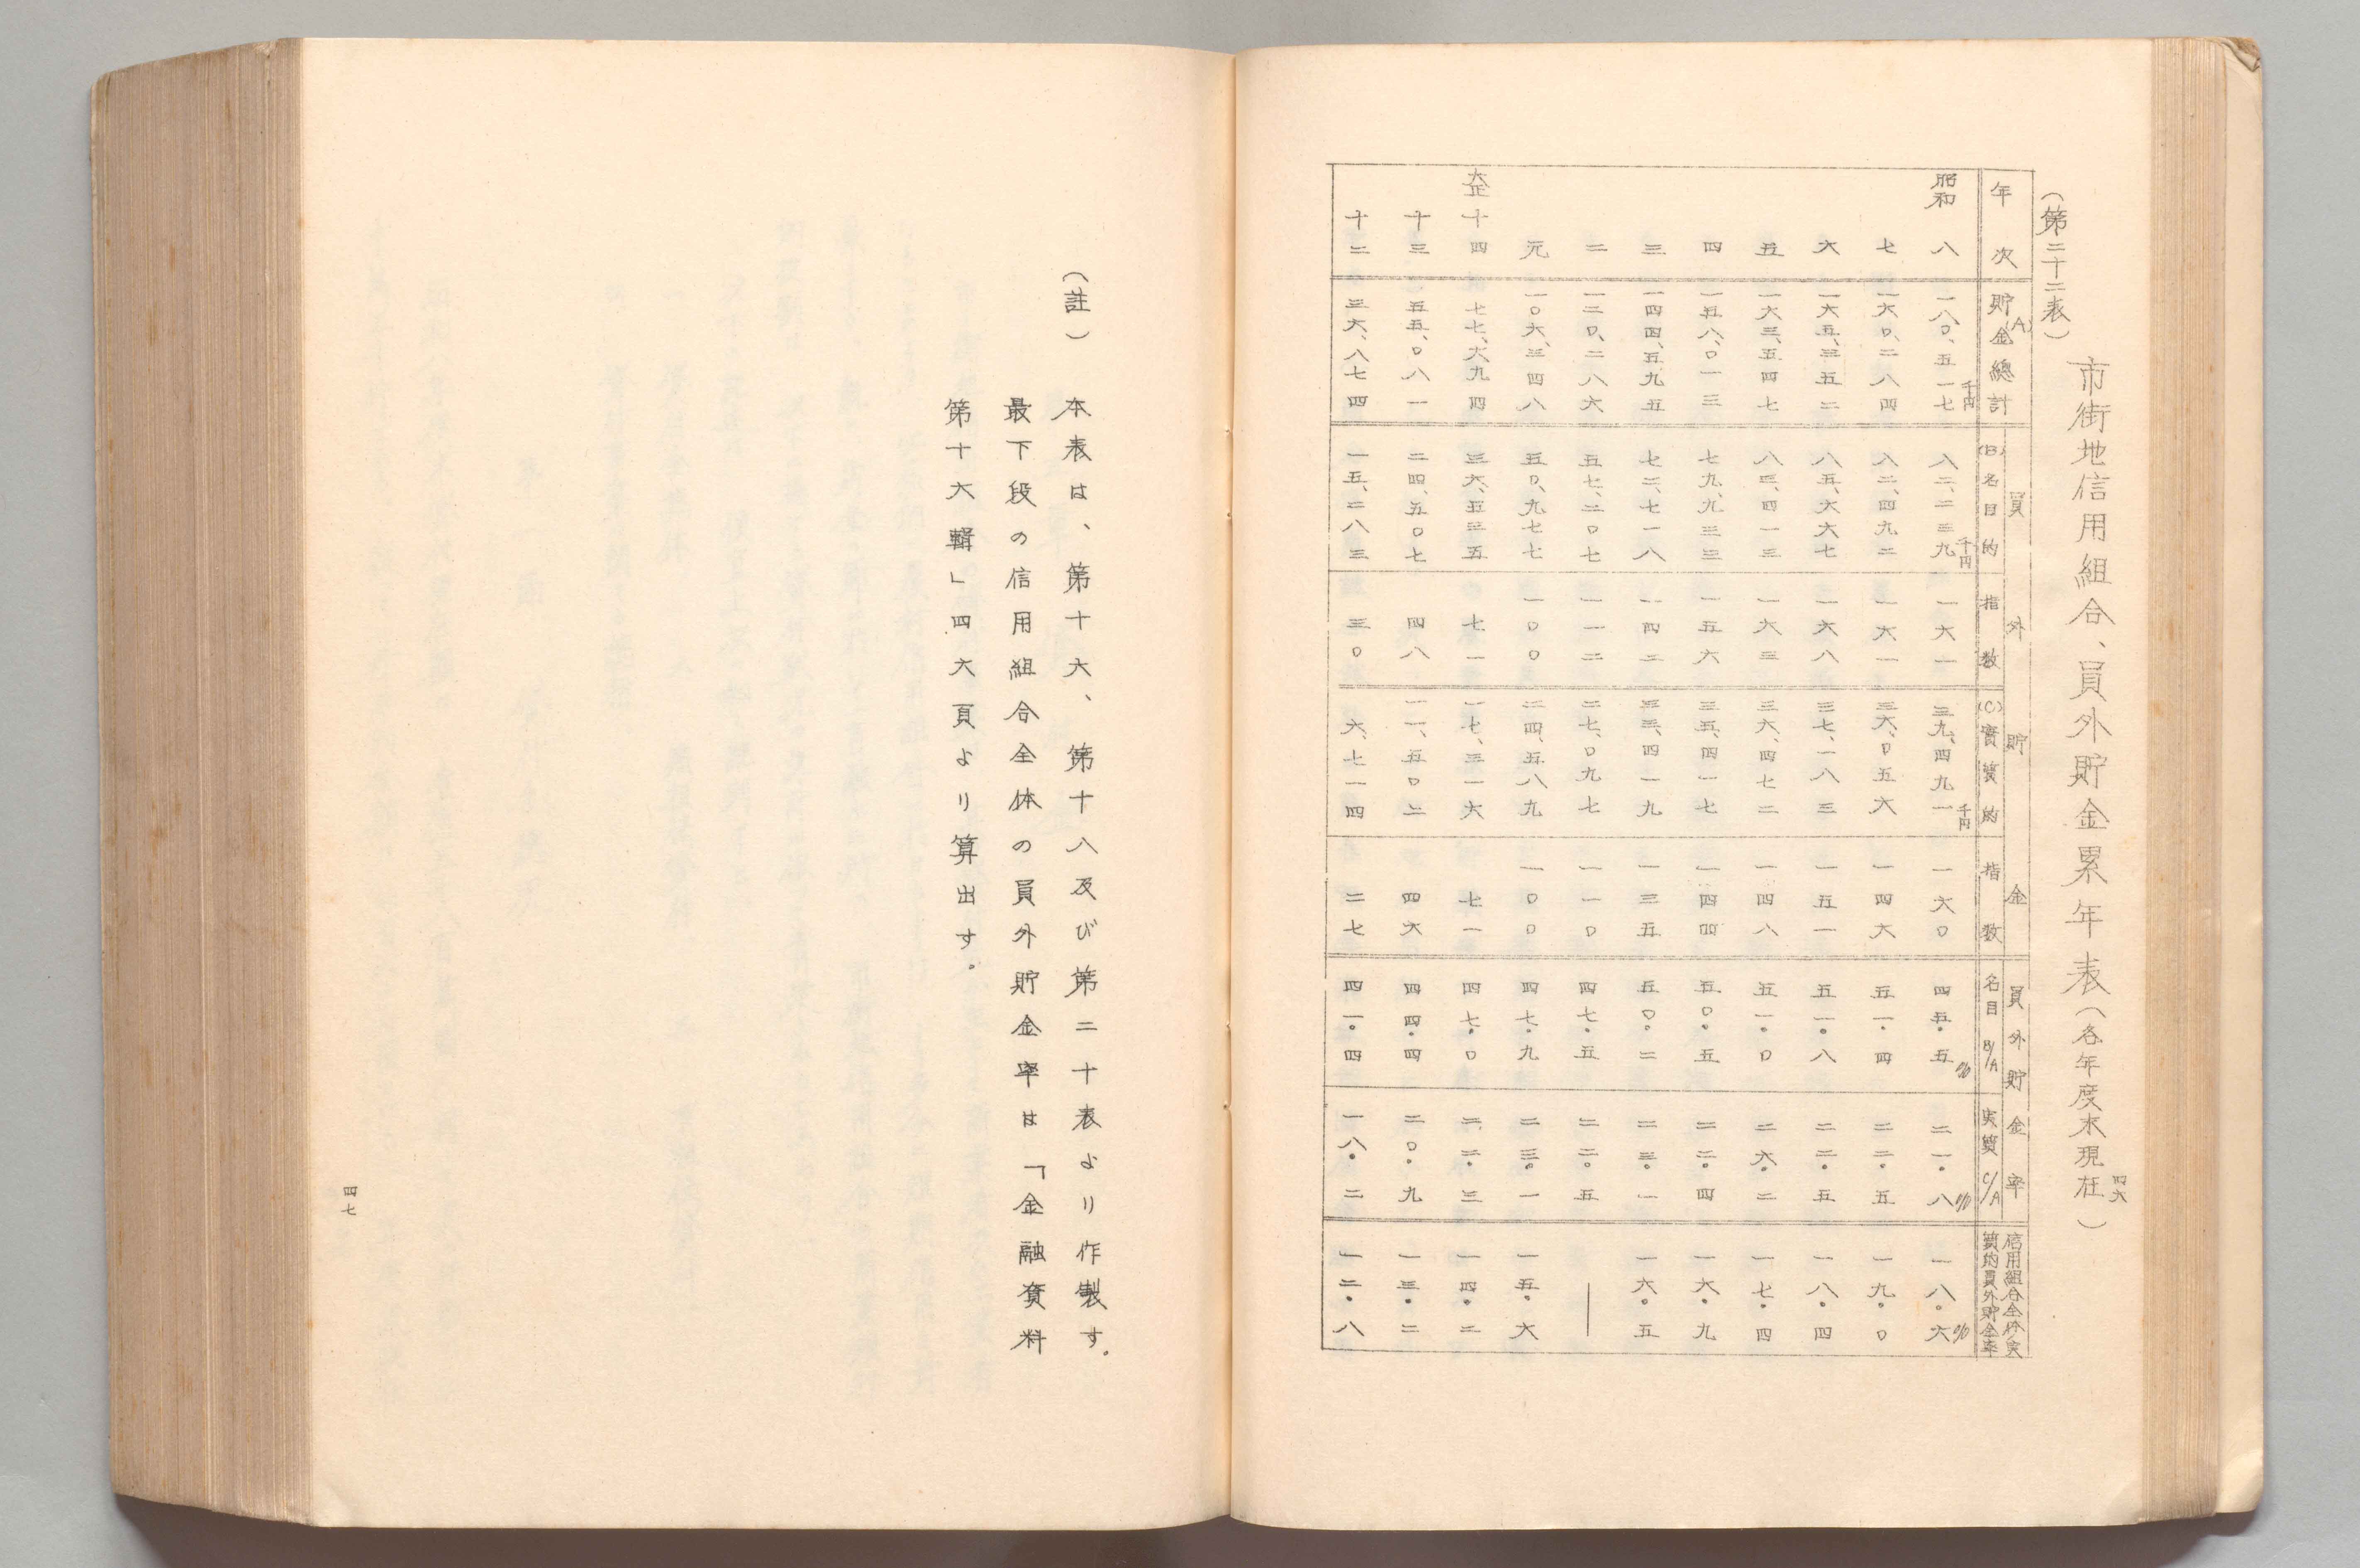 四六
市街地信用組合、員外貯金累年表(各年度末現在)
(第二十二表)
年次 (A)貯金總計 員外貯金 員外貯金率 信用組合全体ノ実質的員外貯金率
(B)名目的 指数 (C)實質的 指数 名目B/A 実質C/A
千円 千円 千円 % % %
昭和八 一八〇、五一七 八二、二三九 一六一 三九、四九一 一六〇 四五。五 二一。八 一八。六
七 一六〇、二八四 八二、四九二 一六一 三六、〇五六 一四六 五一。四 二二。五 一九。〇
六 一六五、三五二 八五、六六七 一六八 三七、一八三 一五一 五一。八 二二。五 一八。四
五 一六三、五四七 八三、四一三 一六三 三六、四七二 一四八 五一。〇 二六。二 一七。四
四 一五八、〇一三 七九、九三三 一五六 三五、四一七 一四四 五〇。五 二二。四 一六。九
三 一四四、五九五 七二、七一八 一四二 三三、四一九 一三五 五〇。二 二三。一 一六。五
二 一二〇、二八六 五七、二〇七 一一二 二七、〇九七 一一〇 四七。五 二二。五 ―
元 一〇六、三四八 五〇、九七七 一〇〇 二四、五八九 一〇〇 四七。九 二三。一 一五。六
大正十四 七七、六九四 三六、五三五 七一 一七、三一六 七一 四七。〇 二二。三 一四。二
十三 五五、〇八一 二四、五〇七 四八 一一、五〇二 四六 四四。四 二〇。九 一三。二
十二 三六、八七四 一五、二八三 三〇 六、七一四 二七 四一。四 一八。二 一二。八
(註) 本表は、第十六、第十八及び第二十表より作製す。
最下段の信用組合全体の員外貯金率は「金融資料
第十六輯」四六頁より算出す。
四七